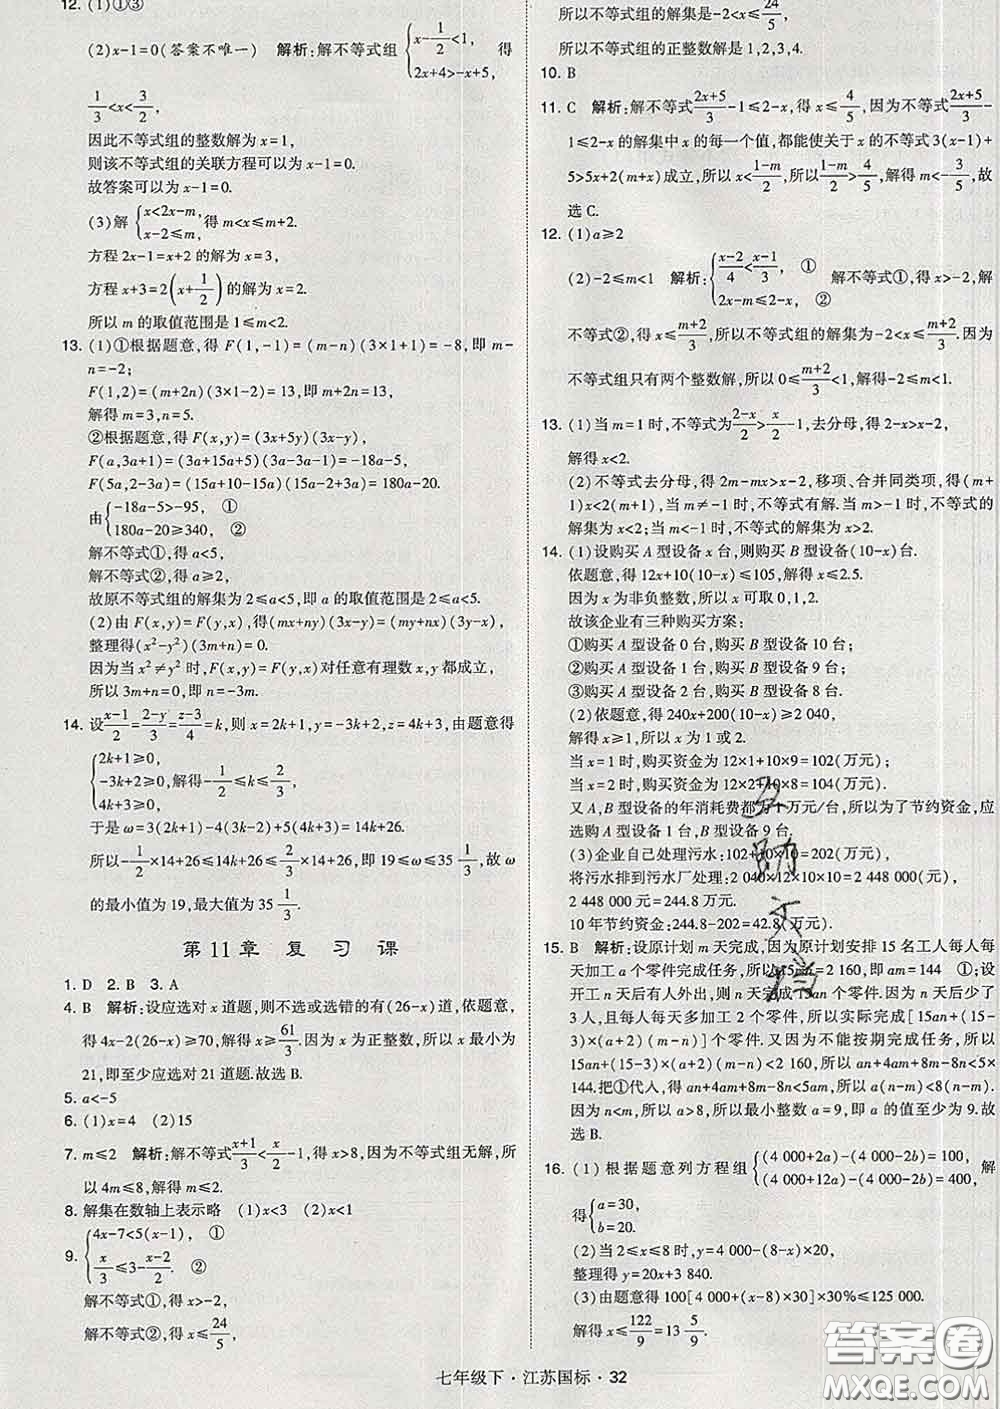 12. (1)①③
(2)x-1=0(答案不唯一) 解析:解不等式组{x-1/2<1, 2x+4>-x+5, 得
1/3<x<3/2,
因此不等式组的整数解为x=1,
则该不等式组的关联方程可以为x-1=0.
故答案可以为x-1=0.
(3)解{x<2x-m, x-2≤m, 得m<x≤m+2.
方程2x-1=x+2的解为x=3,
方程x+3=2(x+1/2)的解为x=2.
所以m的取值范围是1≤m<2.
13. (1)①根据题意,得F(1,-1)=(m-n)(3×1+1)=-8,即m-
n=-2;
F(1,2)=(m+2n)(3×1-2)=13,即m+2n=13,
解得m=3,n=5.
②根据题意,得F(x,y)=(3x+5y)(3x-y),
F(a,3a+1)=(3a+15a+5)(3a-3a-1)=-18a-5,
F(5a,2-3a)=(15a+10-15a)(15a-2+3a)=180a-20.
由{-18a-5>-95, ① 180a-20≥340, ②
解不等式①,得a<5,
解不等式②,得a≥2,
故原不等式组的解集为2≤a<5,即a的取值范围为2≤a<5.
(2)由F(x,y)=F(y,x),得(mx+ny)(3x-y)=(my+nx)(3y-x),
整理得(x²-y²)(3m+n)=0.
因为当x²≠y²时,F(x,y)=F(y,x)对任意有理数x,y都成立,
所以3m+n=0,即n=-3m.
14. 设x-1/2=2-y/3=z-3/4=k,则x=2k+1,y=-3k+2,z=4k+3,由题意得
{2k+1≥0, -3k+2≥0, 4k+3≥0, 解得-1/2≤k≤2/3.
于是ω=3(2k+1)-4(3k-2)+5(4k+3)=14k+26.
所以-1/2×14+26≤14k+26≤2/3×14+26,即19≤ω≤35 1/3,故ω
的最小值为19,最大值为35 1/3.
第11章 复习课
1. D 2. B 3. A
4. B 解析:设应选对x道题,则不选或选错的有(26-x)道,依题意,
得4x-2(26-x)≥70,解得x≥61/3.因为x为正整数,所以x最小为
21,即至少应选对21道题.故选B.
5. a<-5
6. (1)x=4 (2)15
7. m≤2 解析:解不等式x+1/3<x/2-1,得x>8,因为不等式组无解,所
以4m≤8,解得m≤2.
8. 解集在数轴上表示略 (1)x<3 (2)x<1
9. {4x-7<5(x-1), ① x/3≤3-x-2/2. ②
解不等式①,得x>-2,
解不等式②,得x≤24/5,
所以不等式组的解集是-2<x≤24/5,
所以不等式组的正整数解是1,2,3,4.
10. B
11. C 解析:解不等式2x+5/3-1≤2-x,得x≤4/5,因为不等式2x+5/3-
1≤2-x的解集中x的每一个值,都能使关于x的不等式3(x-1)+
5>5x+2(m+x)成立,所以x<1-m/2,所以1-m/2>4/5,解得m<-3/5,故
选C.
12. (1)a≥2
(2)-2≤m<1 解析:{x-2/4<x-1/3, ① 2x-m≤2-x, ② 解不等式①,得x>-2,解
不等式②,得x≤m+2/3,所以不等式组的解集为-2<x≤m+2/3.因为
不等式组只有两个整数解,所以0≤m+2/3<1,解得-2≤m<1.
13. (1)当m=1时,不等式为2-x/2>x/2-1,去分母,得2-x>x-2,
解得x<2.
(2)不等式去分母,得2m-mx>x-2,移项、合并同类项,得(m+
1)x<2(m+1),当m≠-1时,不等式有解.当m>-1时,不等式的
解集为x<2;当m<-1时,不等式的解集为x>2.
14. (1)设购买A型设备x台,则购买B型设备(10-x)台.
依题意,得12x+10(10-x)≤105,解得x≤2.5.
因为x为非负整数,所以x可取0,1,2.
故该企业有三种购买方案:
①购买A型设备0台,购买B型设备10台;
②购买A型设备1台,购买B型设备9台;
③购买A型设备2台,购买B型设备8台.
(2)依题意,得240x+200(10-x)≥2 040,
解得x≥1,所以x为1或2.
当x=1时,购买资金为12×1+10×9=102(万元);
当x=2时,购买资金为12×2+10×8=104(万元);
又A,B型设备的年消耗费都为1万元/台,所以为了节约资金,应
选购A型设备1台,B型设备9台.
(3)企业自己处理污水:102+10×10=202(万元),
将污水排到污水厂处理:2 040×12×10×10=2 448 000(元),
2 448 000元=244.8万元.
10年节约资金:244.8-202=42.8(万元).
15. B 解析:设原计划m天完成,因为原计划安排15名工人每人每
天加工a个零件完成任务,所以15am=2 160,即am=144 ①;设
开工n天后有人外出,则n天完成15an个零件.因为n天后减少了
3人,且每人每天多加工2个零件,所以实际完成[15an+(15-
3)×(a+2)(m-n)]个零件.又因为不能按期完成任务,所以
15an+(15-3)×(a+2)(m-n)<2 160,所以an+4am+8m-8n<5×
144.把①代入,得an+4am+8m-8n<5am,所以a(n-m)<8(n-m).
因为n<m,所以a>8,所以最小整数a=9,即a的值至少为9.故
选B.
16. (1)根据题意列方程组{(4 000+2a)-(4 000-2b)=100, (4 000+12a)-(4 000-2b)=400, 解
得{a=30, b=20.
(2)当2≤x≤8时,y=4 000-(8-x)×20,
整理得y=20x+3 840.
(3)由题意得100[4 000+(x-8)×30]×30%≤125 000.
解得x≤122/9=13 5/9.
七年级下·江苏国标·32
答案圈
MXQE.COM